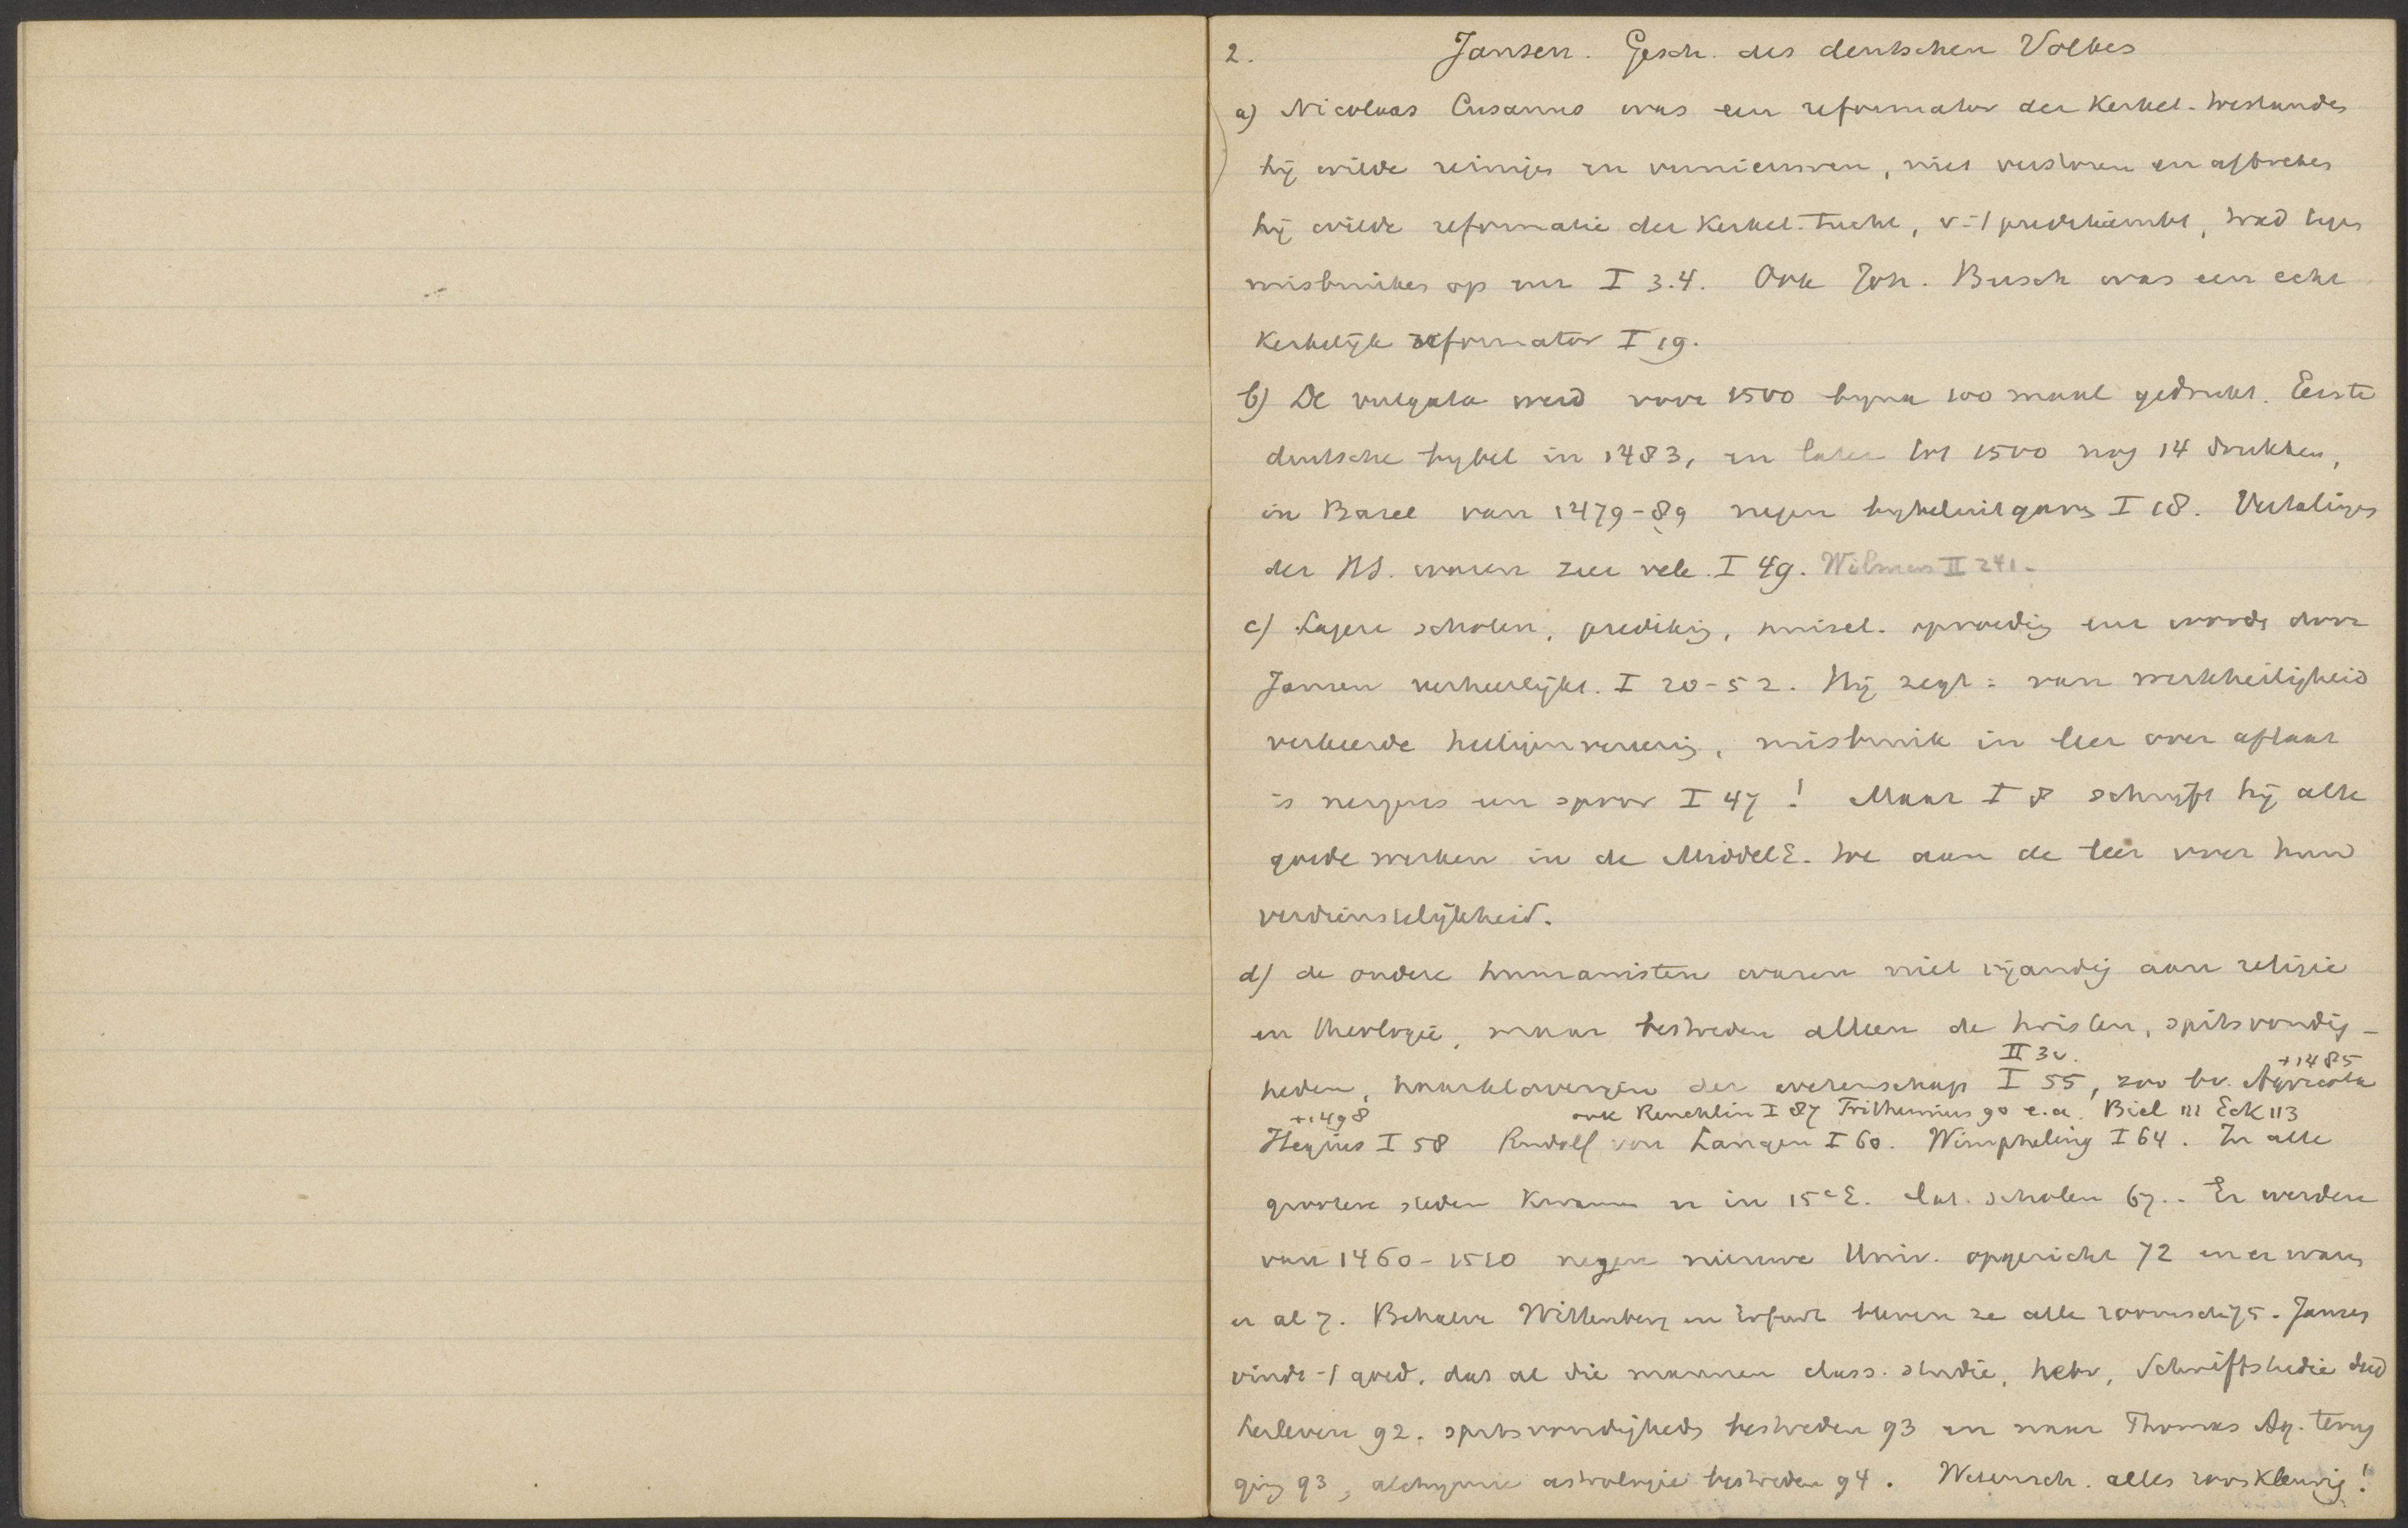 2. Jansen. Gesch. des deutschen Volkes
a) Nicolaas Cusanus was een reformator der Kerkel. toestanden
hij wilde reinigen en vernieuwen, niet verstoren en afbreken
hij wilde reformatie der Kerkel. Tucht, v. 't predikambt, trad tegen
misbruiken op enz I 3.4. Ook Joh. Busch was een echt
Kerkelijk reformator I 19.
b) De vulgata werd voor 1500 byna 100 maal gedrukt. Eerste
duitsche bybel in 1483, en later tot 1500 nog 14 drukken,
in Basel van 1479-89 negen bybeluitgaven I 18. Vertalingen
der HS. waren zeer vele. I 49. Wilmers II 241.
c) Lagere scholen, prediking, huisel. opvoeding enz wordt door
Jansen verheerlijkt. I 20-52. Hij zegt: van werkheiligheid
verkeerde heiligenvereering, misbruik in leer over aflaat
is nergens een spoor I 47! Maar I 8 schrijft hij alle
goede werken in de MiddelE. toe aan de leer over hun
verdienstelijkheid.
d) de oudere humanisten waren niet vijandig aan religie
en theologie, maar bestreden alleen de twisten, spitsvondig-
II 30. +1485
heden, haarklooverijen der wetenschap I 55, zoo bv. Agricola
+1498 ook Reuchlin I 87 Trithemius 90 e.a. Biel 111 Eck 113
Hegius I 58 Rudolf von Langen I 60. Wimpheling I 64. In alle
grootere steden Kwamen er in 15e E. lat. scholen 67. Er werden
van 1460-1510 negen nieuwe Univ. opgericht 72 en er waren
er al 7. Behalve Wittenberg en Erfurt bleven ze alle roomsch 75. Jansen
vindt 't goed, dat al die mannen class. studie, hebr, Schriftstudie deed
herleven 92. spitsvondigheden bestreden 93 en naar Thomas Aq. terug
ging 93, alchymie astrologie bestreden 94. Wetensch. alles rooskleurig!